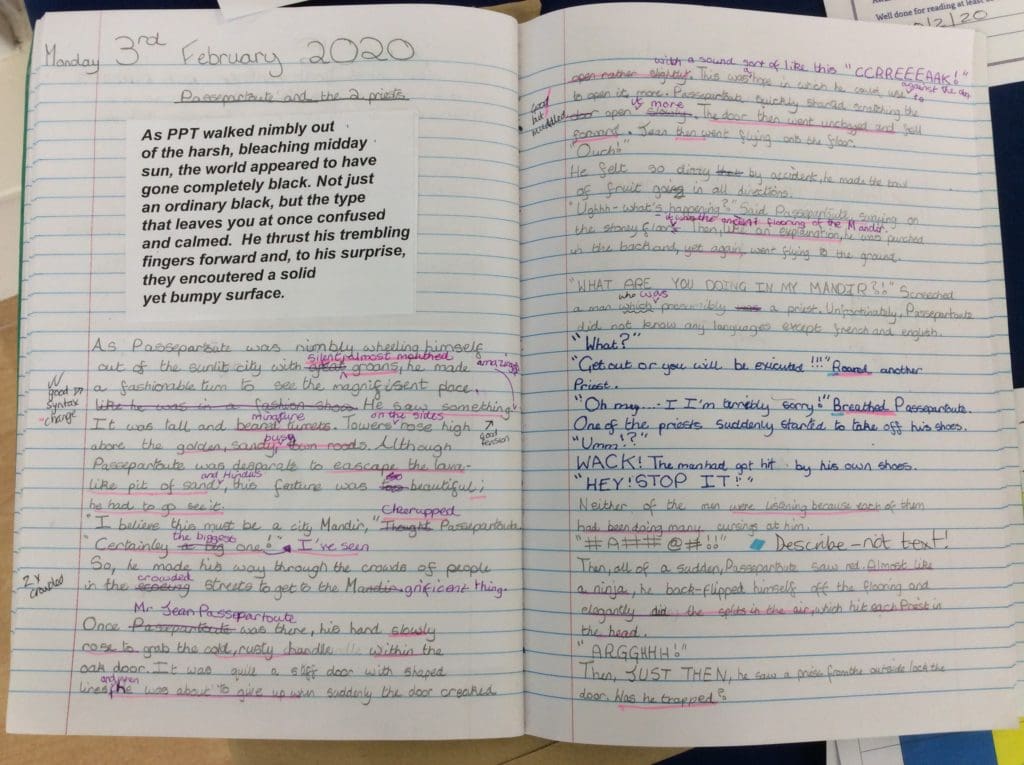 Monday 3rd February 2020
Passepartoute and the 2 priests
As PPT walked nimbly out
of the harsh, bleaching midday
sun, the world appeared to have
gone completely black. Not just
an ordinary black, but the type
that leaves you at once confused
and calmed. He thrust his trembling
fingers forward and, to his surprise,
they encoutered a solid
yet bumpy surface.
As Passepartoute was nimbly wheeling himself
silent almost mouthed amazing
out of the sunlit city with great groans, he made
a fashionable turn to see the magnifisent place,
good → syntax change
like he was in a fashion show. He saw something
minature on the sides
It was tall and beared turrets. Towers rose high
good tension
busy
above the golden, sandy, town roads. Although
Passepartoute was desparate to eascape the lava-
and Hindus
like pit of sand, this fortune was too beautiful;
he had to go see it.
Cheerupped
"I believe this must be a city Mandir," Thought Passepartoute.
the biggest
"Certainley a big one!" I've seen
So, he made his way through the crowds of people
2x crowded
crowded
in the streets to get to the Mandir.gnificent thing.
Mr Jean Passepartoute
Once Passepartoute was there, his hand slowly
rose to grab the cold, rusty handle within the
oak door. It was quite a stiff door with shaped
and when
lines, he was about to give up win suddenly the door creaked
with a sound sort of like this "CCRREEEAAK!"
open rather slightly. This was hope in which he could use to
against the door
to open it more. Passepartoute quickly started scratching the
good but muddled
it more
door open slowing. The door then went uncloged and fell
forward. Jean then went flying onto the floor.
"Ouch!"
He felt so dizzy that by accident, he made the bowl
of fruit going in all directions.
"Ughhh-what's happening?" Said Passepartoute, swaying on
the ancient flooring of the Mandir.
the stoney floor. Then, like an explaination, he was punched
in the back and, yet again, went flying to the ground.
"WHAT ARE YOU DOING IN MY MANDIR?!" Screeched
who was
a man which presumibly was a priest. Unfortinatly, Passepartoute
did not know any languages except french and english.
"What?"
"Get out or you will be executed !!!" Roared another
Priest.
"Oh my.... I I'm terribly sorry!" Breathed Passepartoute.
One of the priests suddenly started to take off his shoes.
"Umm!?"
WACK! The man had got hit by his own shoes.
"HEY! STOP IT!"
Neither of the men were lisening because each of them
had been doing many cursings at him.
"#A### @#!!" Describe-not text!
Then, all of a sudden, Passepartoute saw red. Almost like
a ninja, he back-flipped himself off the flooring and
elegantly did the splits in the air, which hit each Priest in
the head.
"ARGGHHH!"
Then, JUST THEN, he saw a priest from the outside lock the
door. Was he trapped?
Well done for reading at least
2/20